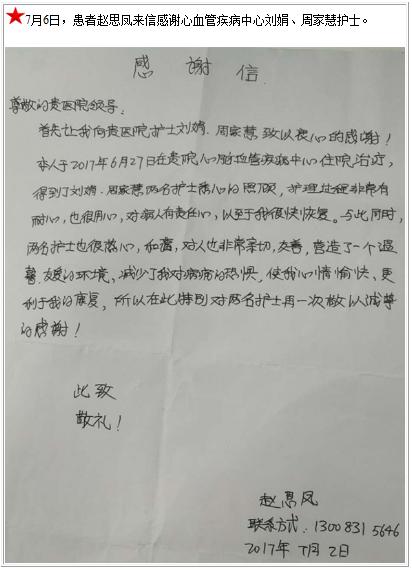 ★7月6日，患者赵思凤来信感谢心血管疾病中心刘娟、周家慧护士。
感谢信
尊敬的贵医院领导：
首先让我向贵医院护士刘娟、周家慧致以衷心的感谢！
本人于2017年6月27日在贵院心脏血管疾病中心住院治疗，
得到了刘娟、周家慧两名护士的照顾，护理过程非常有
耐心，也很用心，对病人有责任心，以至于我很快恢复。与此同时，
两名护士也很热心，和蔼，对人也非常亲切，友善，营造了一个温
馨友爱的环境，减少了我对病痛的恐惧，使我心情愉快、更
利于我的康复，所以在此特别对两名护士再一次致以诚挚
的感谢！
此致
敬礼！
赵思凤
联系方式：1300831 5646
2017年7月2日